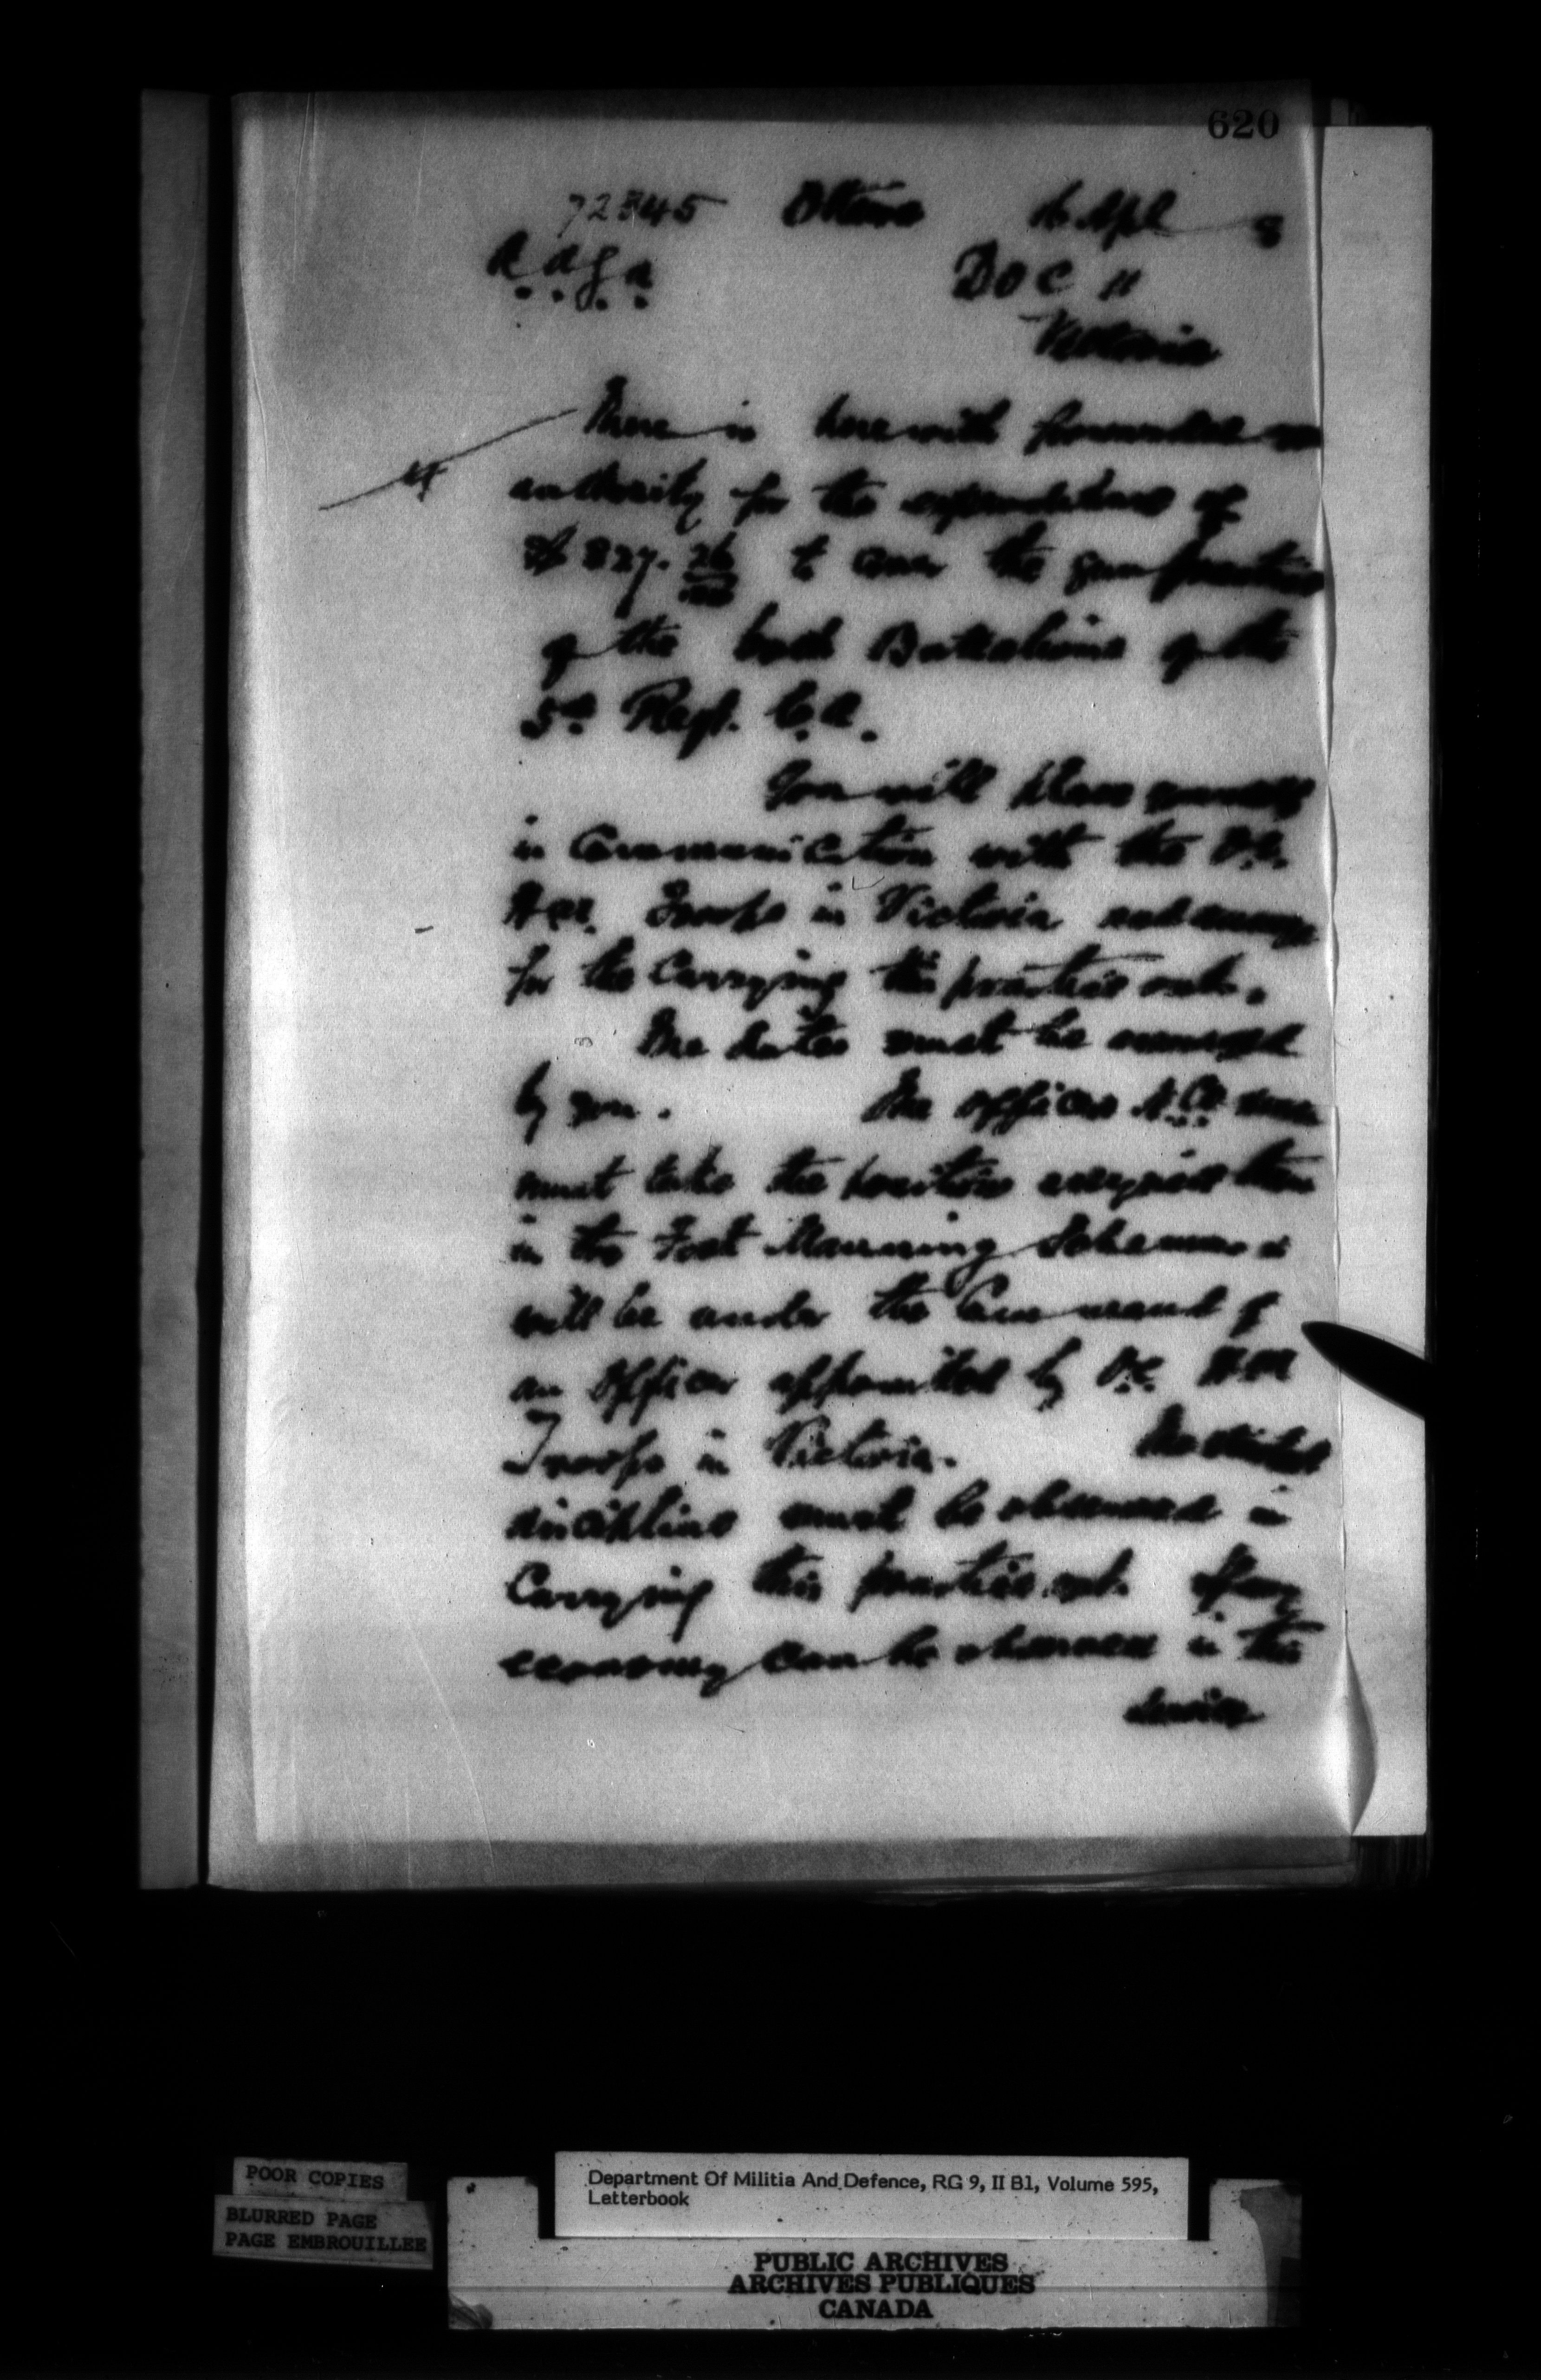 620
72845 Ottawa 16 Apl 8
A.A.G.A. DOC 11
Victoria
There is herewith forwarded an
authority for the expenditure of
$827.26/100 to cover the gun practice
of the both Battalions of the
5th Regt. C.A.
You will place yourself
in Communication with the O.C.
H.M. Troops in Victoria and arrange
for the Carrying this practice out.
The dates must be arranged
by you. The officers N.C.O. men
must take the position assigned them
in the Fort Manning Scheme &
will be under the Command of
an Officer appointed by O.C. H.M.
Troops in Victoria. The strictest
discipline must be observed in
Carrying this practice out. If any
economy can be observed in this
service
POOR COPIES
BLURRED PAGE
PAGE EMBROUILLEE
Department Of Militia And Defence, RG 9, II B1, Volume 595,
Letterbook
PUBLIC ARCHIVES
ARCHIVES PUBLIQUES
CANADA